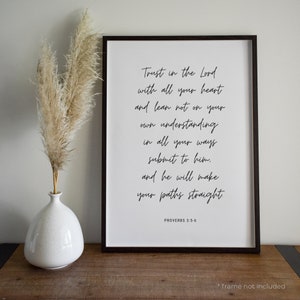 Trust in the Lord
with all your heart
and lean not on your
own understanding
in all your ways
submit to him,
and he will make
your paths straight
PROVERBS 3:5-6
* frame not included